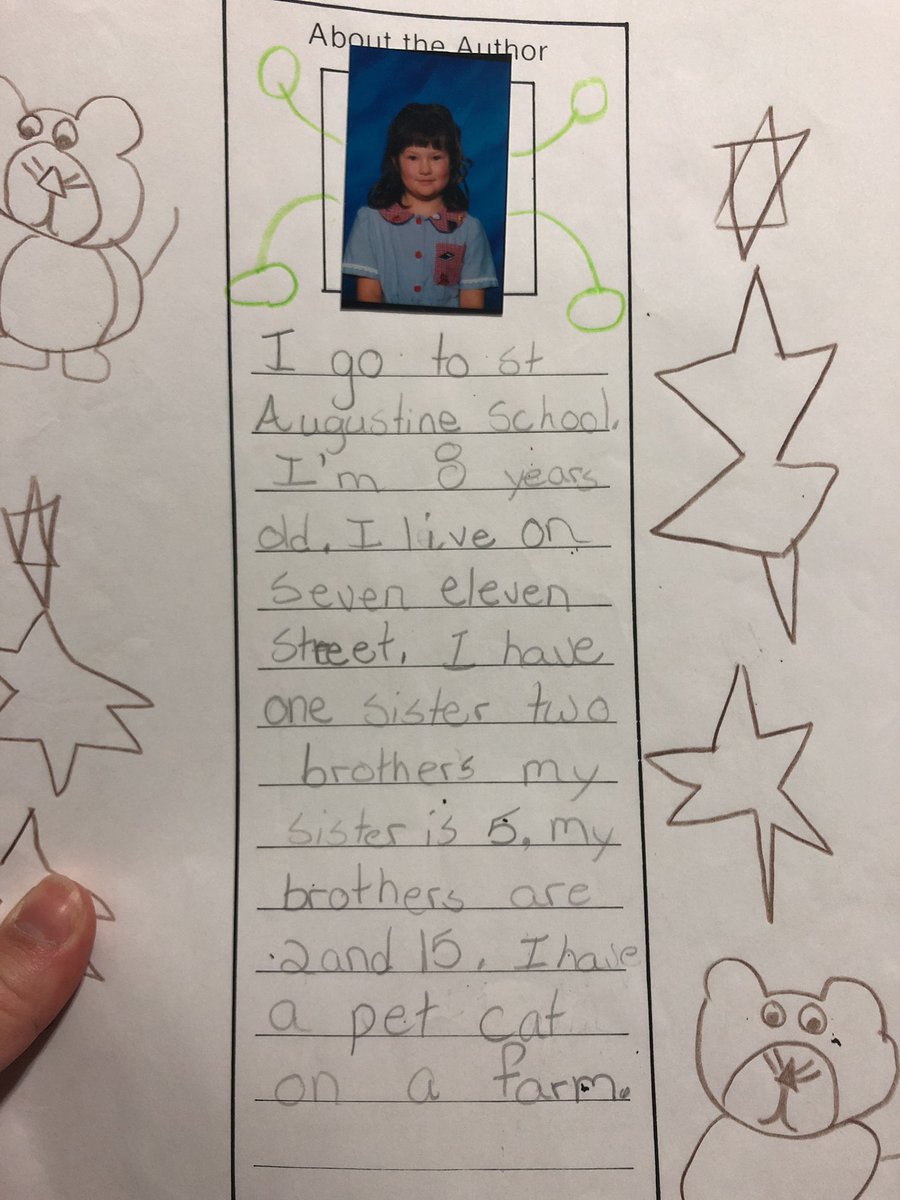 About the Author
I go to st
Augustine School.
I'm 8 years
old. I live on
seven eleven
Street. I have
one sister two
brothers my
sister is 5. my
brothers are
2 and 15. I have
a pet cat
on a farm.